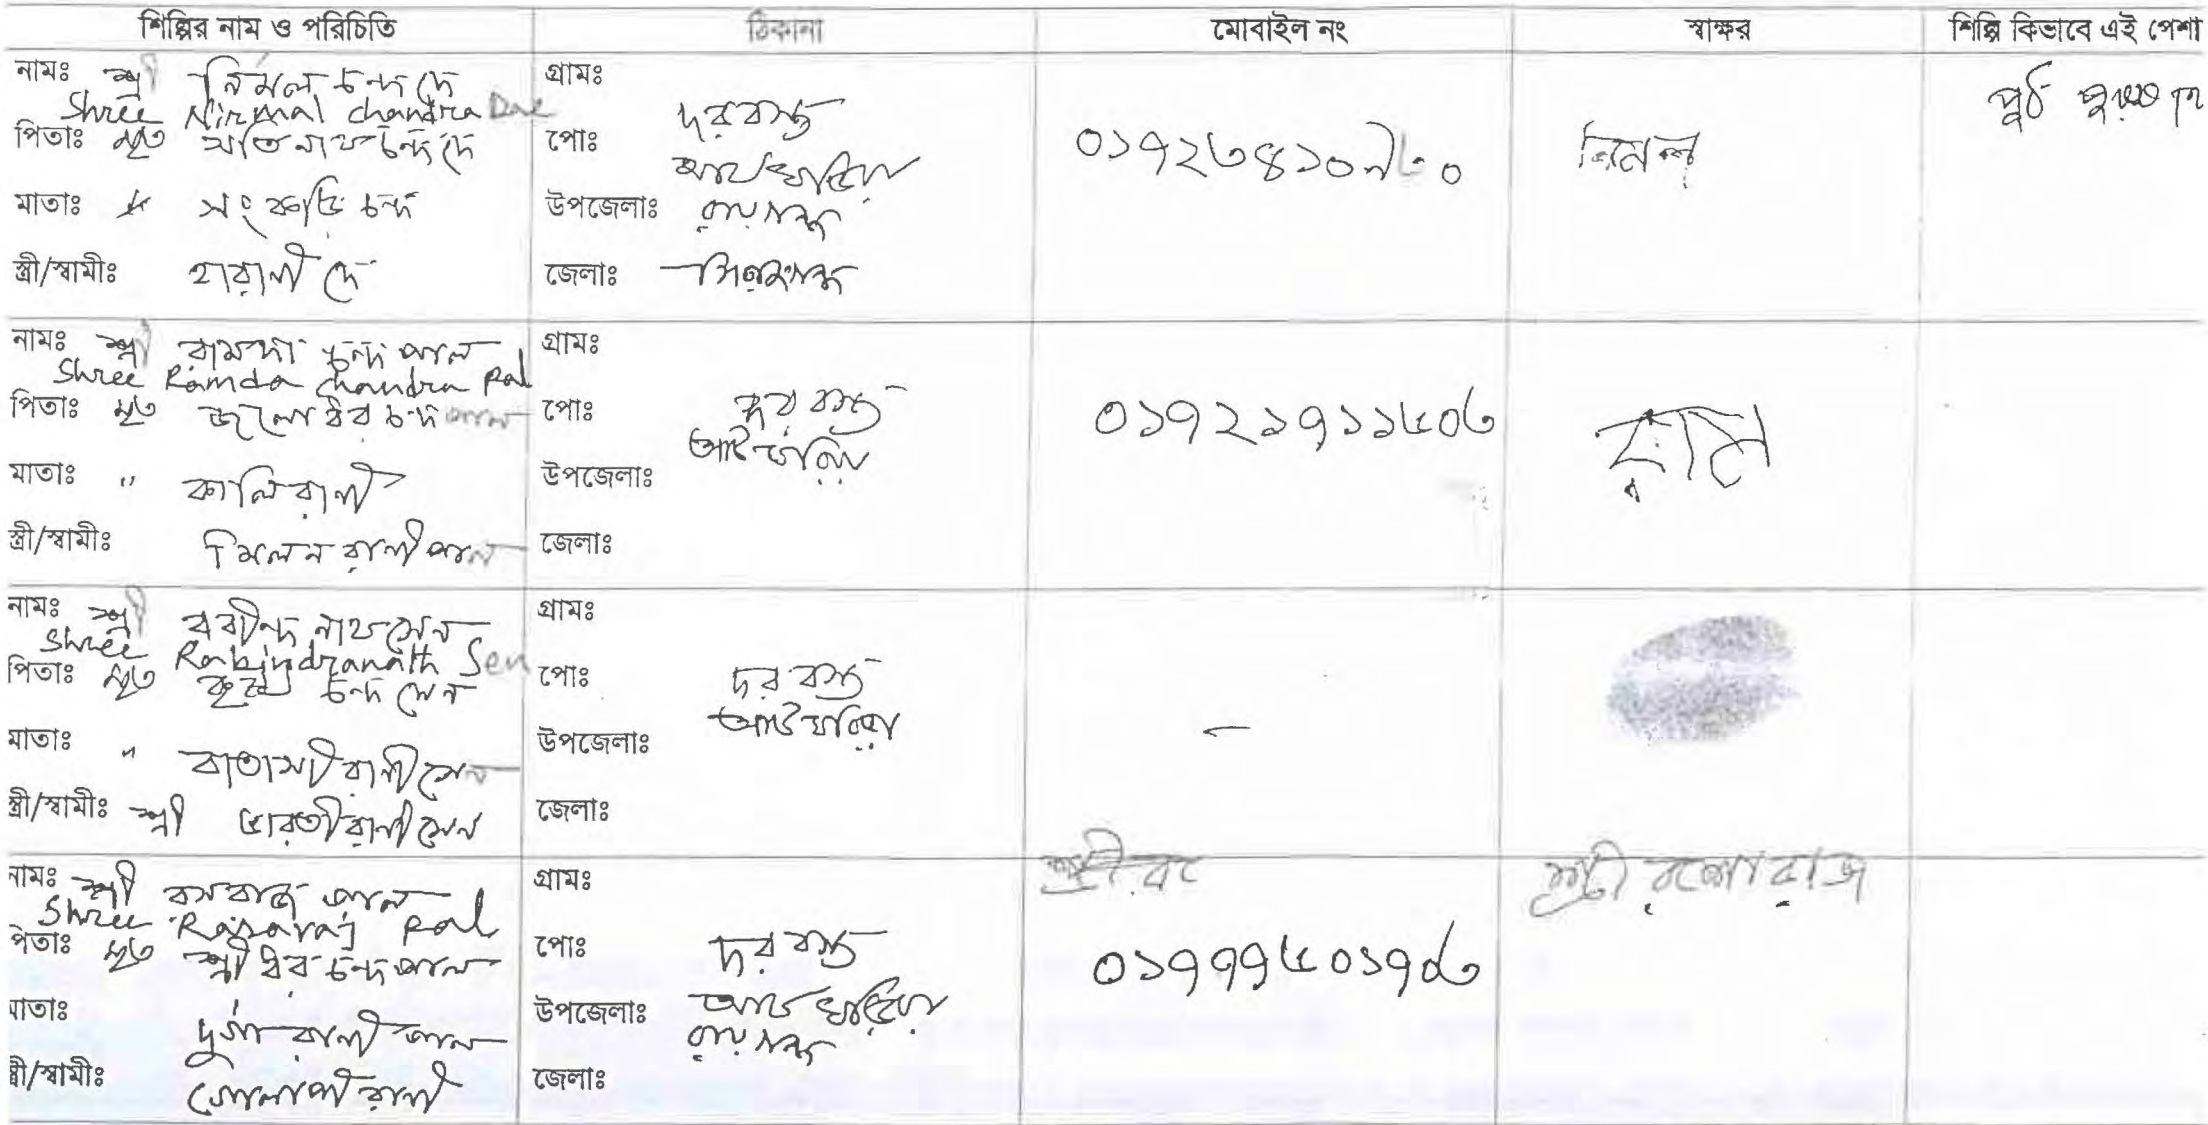 শিল্পির নাম ও পরিচিতি ঠিকানা মোবাইল নং স্বাক্ষর শিল্পি কিভাবে এই পেশা
নামঃ শ্রী নির্মল চন্দ্র দে
Shree Nirmal Chandra Dae
পিতাঃ মৃত চন্দ্র দে
মাতাঃ চন্দ্র
স্ত্রী/স্বামীঃ হারানী দে
গ্রামঃ দরবস্ত
পোঃ আটঘরিয়া
উপজেলাঃ রায়গঞ্জ
জেলাঃ সিরাজগঞ্জ
নির্মল
নামঃ শ্রী রামদা চন্দ্র পাল
Shree Ramda Chandra Pal
পিতাঃ মৃত জলোধর চন্দ্র পাল
মাতাঃ " কালি রানী
স্ত্রী/স্বামীঃ মিলন রানী পাল
গ্রামঃ
পোঃ দরবস্ত
আটঘরিয়া
উপজেলাঃ
জেলাঃ
০১৭২১৭১১৫০৬
নামঃ শ্রী রবীন্দ্র নাথ সেন
Shree Rabindranath Sen
পিতাঃ মৃত চন্দ্র সেন
মাতাঃ " বাতাসী রানী সেন
স্ত্রী/স্বামীঃ শ্রী ভারতী রানী সেন
গ্রামঃ
পোঃ দরবস্ত
আটঘরিয়া
উপজেলাঃ
জেলাঃ
–
নামঃ শ্রী রসরাজ পাল
Shree Rasaraj Pal
পিতাঃ মৃত শ্রীধর চন্দ্র পাল
মাতাঃ দুর্গা রানী পাল
স্ত্রী/স্বামীঃ গোলাপী রানী
গ্রামঃ
পোঃ দরবস্ত
উপজেলাঃ আটঘরিয়া
রায়গঞ্জ
জেলাঃ
শ্রী র
০১৭৭৭৫০১৭০৬
শ্রী রশোরাজ